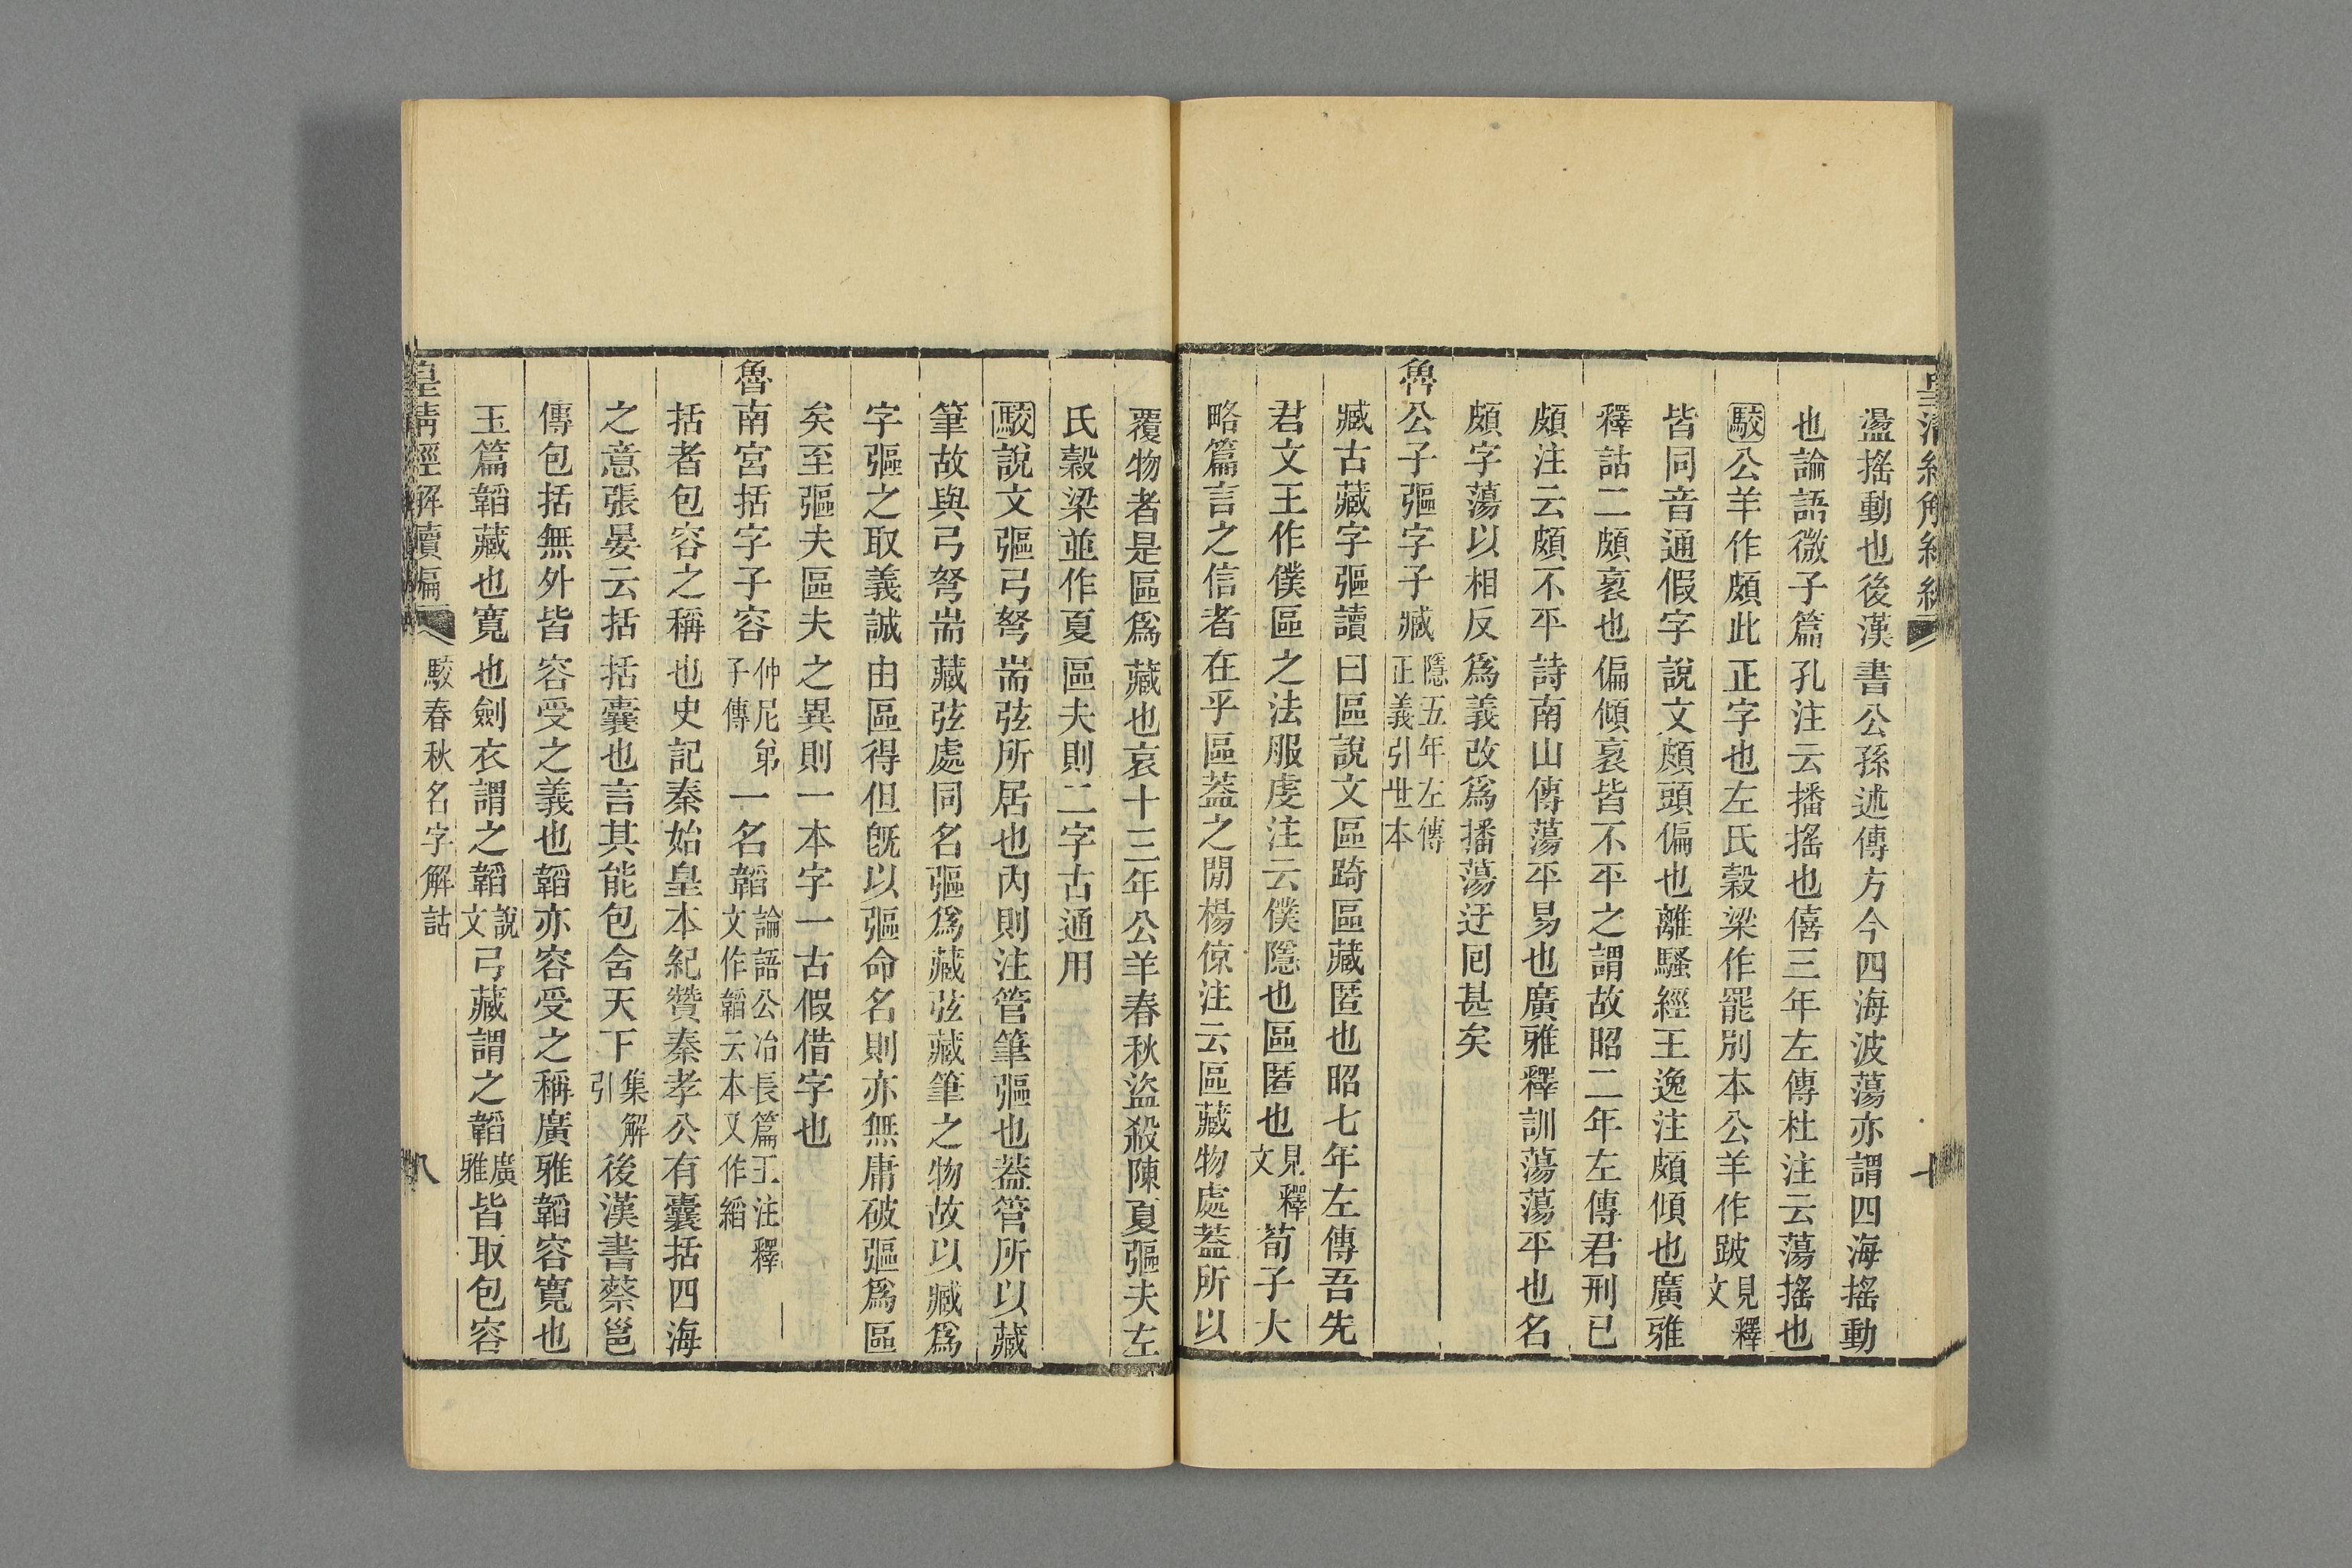 盪搖動也後漢書公孫述傳方今四海波蕩亦謂四海搖動
也論語微子篇孔注云播搖也僖三年左傳杜注云蕩搖也
駮公羊作頗此正字也左氏穀梁作罷別本公羊作跛見釋文
皆同音通假字說文頗頭偏也離騷經王逸注頗傾也廣雅
釋詁二頗衺也偏傾衺皆不平之謂故昭二年左傳君刑已
頗注云頗不平詩南山傳蕩平易也廣雅釋訓蕩蕩平也名
頗字蕩以相反爲義改爲播蕩迂回甚矣
魯公子彄字子臧隱五年左傳正義引世本
臧古藏字彄讀曰區說文區踦區藏匿也昭七年左傳吾先
君文王作僕區之法服虔注云僕隱也區匿也見釋文荀子大
略篇言之信者在乎區蓋之閒楊倞注云區藏物處蓋所以
覆物者是區爲藏也哀十三年公羊春秋盜殺陳夏彄夫左
氏穀梁並作夏區夫則二字古通用
駮說文彄弓弩耑弦所居也內則注管筆彄也葢管所以藏
筆故與弓弩耑藏弦處同名彄爲藏弦藏筆之物故以臧爲
字彄之取義誠由區得但旣以彄命名則亦無庸破彄爲區
矣至彄夫區夫之異則一本字一古假借字也
魯南宮括字子容仲尼弟子傳一名韜論語公冶長篇王注釋文作韜云本又作縚
括者包容之稱也史記秦始皇本紀贊秦孝公有囊括四海
之意張晏云括括囊也言其能包含天下集解引後漢書蔡邕
傳包括無外皆容受之義也韜亦容受之稱廣雅韜容寬也
玉篇韜藏也寬也劍衣謂之韜說文弓藏謂之韜廣雅皆取包容
皇清經解續編
駮春秋名字解詁
八